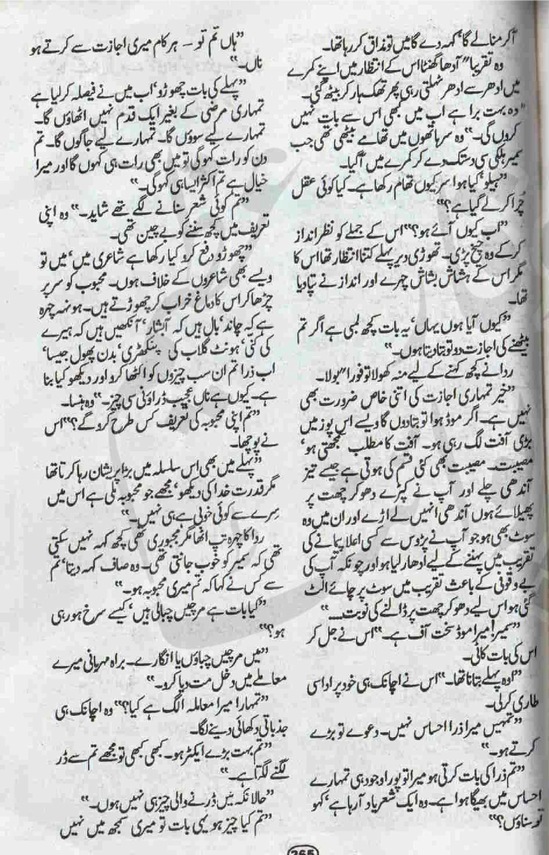 اکر منالے گا‘ کہہ دے گا میں تو مذاق کر رہا تھا۔
وہ تقریبا" آدھا گھنٹا اس کے انتظار میں اپنے کمرے
میں ادھر سے ادھر ٹہلتی رہی پھر تھک ہار کر بیٹھ گئی۔
"وہ بہت برا ہے اب میں کبھی اس سے بات نہیں
کروں گی۔" وہ سر ہاتھوں میں تھامے بیٹھی تھی جب
سمیر ہلکی سی دستک دے کر کمرے میں آگیا۔
"ہیلو‘ کیا ہوا سر کیوں تھام رکھا ہے۔ کیا کوئی عقل
چرا کر لے گیا ہے؟"
"اب کیوں آئے ہو؟" اس کے جملے کو نظر انداز
کر کے وہ چیخ پڑی۔ تھوڑی دیر پہلے کتنا انتظار تھا اس کا
مگر اس کے ہشاش بشاش چہرے اور انداز نے تپا دیا
تھا۔
"کیوں آیا ہوں یہاں‘ یہ بات کچھ لمبی ہے اگر تم
بیٹھنے کی اجازت دو تو بتا دیتا ہوں۔"
ردا نے کچھ کہنے کے لیے منہ کھولا تو فورا" بولا۔
"خیر تمہاری اجازت کی اتنی خاص ضرورت بھی
نہیں ہے۔ اگر موڈ ہوا تو بتا دوں گا ویسے اس پوز میں
بڑی آفت لگ رہی ہو۔ آفت کا مطلب سمجھتی ہو‘
مصیبت۔ مصیبت بھی کئی قسم کی ہوتی ہے جیسے تیز
آندھی چلے اور آپ نے کپڑے دھو کر چھت پر
پھیلائے ہوں آندھی انہیں لے اڑے اور ان میں وہ
سوٹ بھی ہو جو آپ نے پڑوس سے کسی اعلا پیمانے کی
تقریب میں پہننے کے لیے ادھار لیا ہو اور چونکہ آپ کی
بے وقوفی کے باعث تقریب میں سوٹ پر چائے الٹ
گئی ہو اس لیے دھو کر چھت پر ڈالنے کی نوبت۔۔۔"
"سمیر! میرا موڈ سخت آف ہے۔" اس نے جل کر
اس کی بات کاٹی۔
"اوہ پہلے بتانا تھا۔" اس نے اچانک ہی خود پر اداسی
طاری کرلی۔
"تمہیں میرا ذرا احساس نہیں۔ دعوے تو بڑے
کرتے ہو۔"
"تم ذرا کی بات کرتی ہو میرا تو پورا وجود ہی تمہارے
احساس میں بھیگا ہوا ہے۔ وہ ایک شعر یاد آرہا ہے‘ کہو
تو سناؤں؟"
"ہاں تم تو – ہر کام میری اجازت سے کرتے ہو
ناں۔"
"پہلے کی بات چھوڑو‘ اب میں نے فیصلہ کرلیا ہے
تمہاری مرضی کے بغیر ایک قدم نہیں اٹھاؤں گا۔
تمہارے لیے سوؤں گا۔ تمہارے لیے جاگوں گا۔ تم
دن کو رات کہو گی تو میں بھی رات ہی کہوں گا اور میرا
خیال ہے تم اکثر ایسا ہی کہو گی۔"
"تم کوئی شعر سنانے لگے تھے شاید۔" وہ اپنی
تعریف میں کچھ سننے کو بے چین تھی۔
"چھوڑو دفع کرو کیا رکھا ہے شاعری میں‘ میں تو
ویسے بھی شاعروں کے خلاف ہوں۔ محبوب کو سر پر
چڑھا کر اس کا دماغ خراب کر چھوڑتے ہیں۔ ہونہہ چہرہ
ہے کہ چاند‘ بال ہیں کہ آبشار‘ آنکھیں ہیں کہ ہیرے
کی کنی‘ ہونٹ گلاب کی پنکھڑی‘ بدن پھول جیسا‘
اب ذرا تم ان سب چیزوں کو اکٹھا کرو اور دیکھو کیا بنا
ہے۔ کیوں ہے ناں عجیب ڈراؤنی سی چیز۔" وہ ہنسا۔
"تم اپنی محبوبہ کی تعریف کس طرح کرو گے؟" اس
نے پوچھا۔
"پہلے میں بھی اس سلسلہ میں بڑا پریشان رہا کرتا تھا
مگر قدرت خدا کی دیکھو‘ مجھے جو محبوبہ ملی ہے اس میں
سرے سے کوئی خوبی ہے ہی نہیں۔"
ردا کا چہرہ تپ اٹھا مگر مجبوری تھی کچھ کہہ نہیں سکتی
تھی کہ سمیر کو خوب جانتی تھی۔ وہ صاف کہہ دیتا‘ تم
سے کس نے کہا کہ تم میری محبوبہ ہو۔"
"کیا بات ہے مرچیں چبالی ہیں‘ کیسے سرخ ہو رہی
ہو؟"
"میں مرچیں چباؤں یا انگارے۔ براہ مہربانی میرے
معاملے میں دخل مت دیا کرو۔"
"تمہارا میرا معاملہ الگ ہے کیا؟" وہ اچانک ہی
جذباتی دکھائی دینے لگا۔
"تم بہت بڑے ایکٹر ہو۔ کبھی کبھی تو مجھے تم سے ڈر
لگنے لگتا ہے۔"
"حالانکہ میں ڈرنے والی چیز ہی نہیں ہوں۔"
"تم کیا چیز ہو یہی بات تو میری سمجھ میں نہیں
265